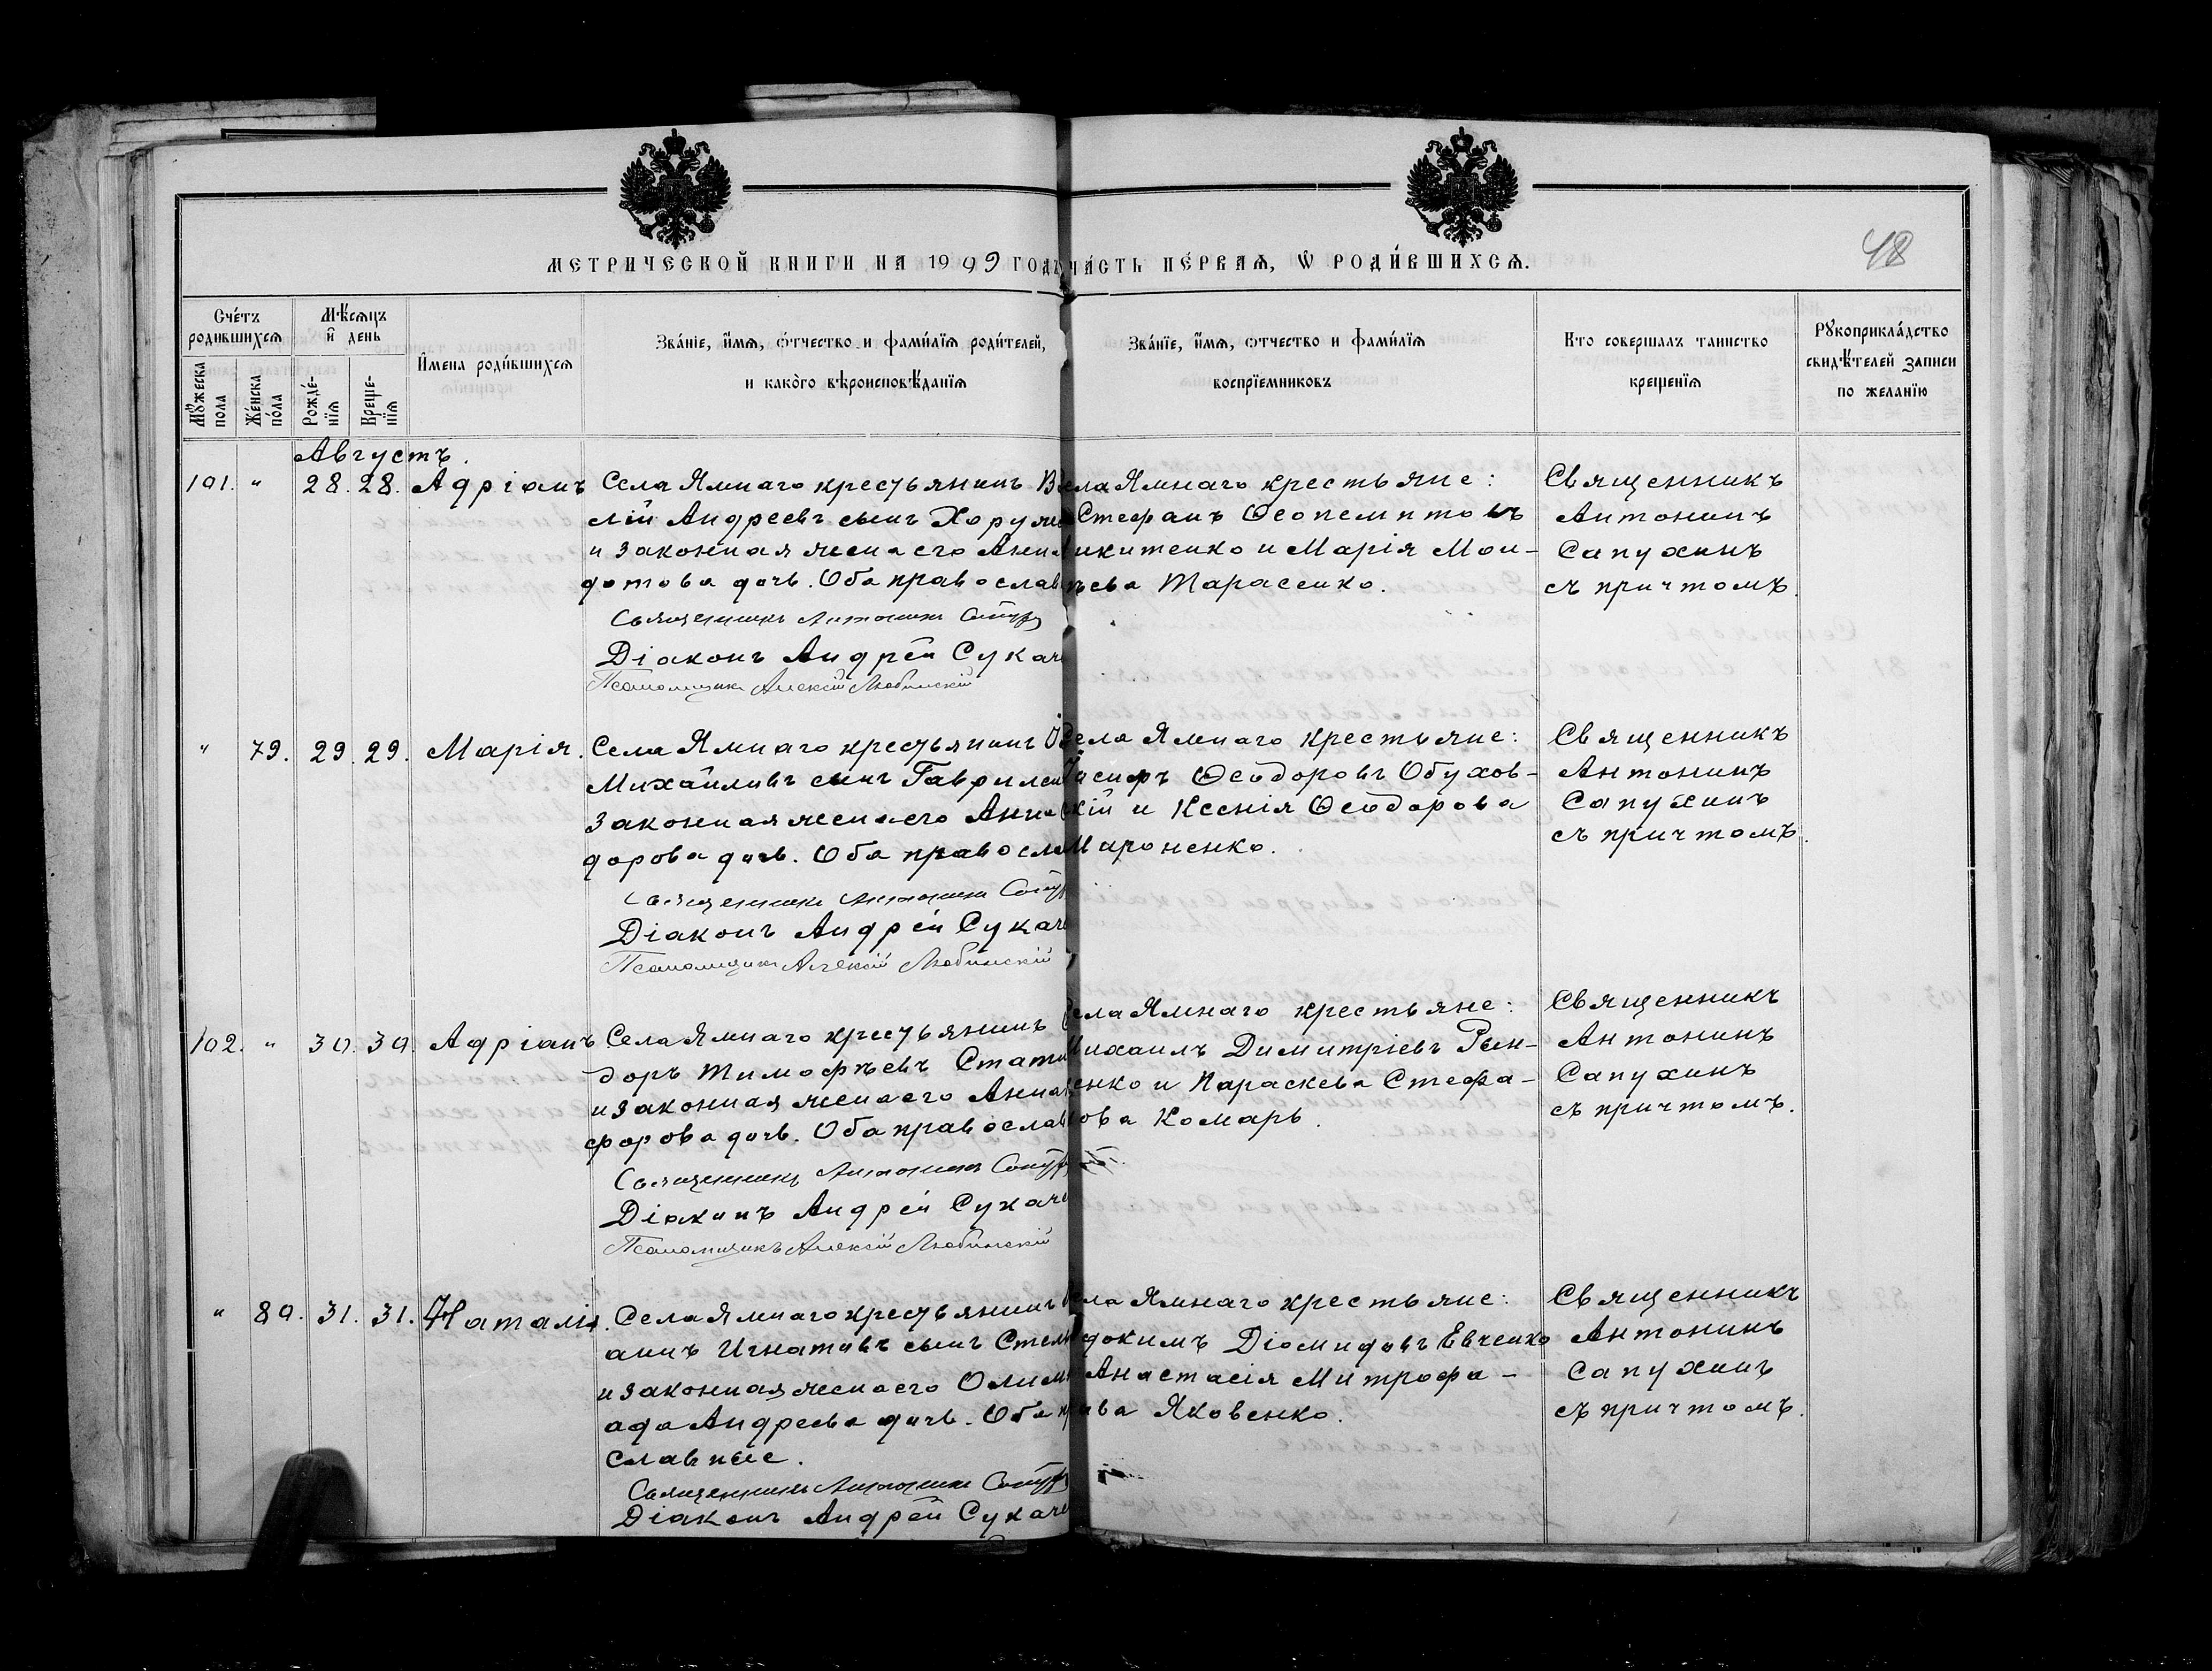 МЕТРИЧЕСКОЙ КНИГИ НА 1909 ГОДЪ ЧА́СТЬ ПЕ́РВАѦ, Ѡ РОДИ́ВШИХСѦ.
48
Сче́тъ родившихсѧ
Мѣ́сѧцъ и҆ день
Имена роди́вшихсѧ
Зва́нїе, и҆́мѧ, ѻ҆́тчество и фами́лїѧ роди́телей,
и како́го вѣроисповѣ́данїѧ
Зва́нїе, и҆́мѧ, ѻтчество и фами́лїѧ
воспрїемниковъ
Кто совершалъ таинство
крещенїѧ
Рꙋкоприкла́дство
свидѣ́телей записи
по желанїю
Мꙋ́жеска пола
Же́нска по́ла
Рожде́-нїѧ
Креще-нїѧ
Августъ.
101. " 28. 28. Адріанъ
Села Ямнаго крестьянинъ В
лій Андреевъ сынъ Хоруж
и законная жена его Анна
дотова дочь. Оба православ
Священникъ Антонинъ Сапу
Діаконъ Андрей Сукач
Псаломщикъ Алексій Любинскій
ела Ямнаго крестьяне:
Стефанъ Ѳеопемптовъ
икитенко и Марія Мои-
ѣева Тарасенко.
Священникъ
Антонинъ
Сапухинъ
съ причтомъ.
" 79. 29. 29. Марія.
Села Ямнаго крестьянинъ
Михайловъ сынъ Гаврилен
законная жена его Анна
дорова дочь. Оба правосла
Священникъ Антонинъ Сапу
Діаконъ Андрей Сукач
Псаломщикъ Алексій Любинскій
ела Ямнаго крестьяне:
Іосифъ Ѳеодоровъ Обухов-
скій и Ксенія Ѳеодорова
Мироненко.
Священникъ
Антонинъ
Сапухинъ
съ причтомъ.
102. " 30. 30. Адріанъ
Села Ямнаго крестьянинъ
доръ Тимофѣевъ Стати
и законная жена его Анна
форова дочь. Оба православ
Священникъ Антонинъ Сапу
Діаконъ Андрей Сукаче
Псаломщикъ Алексій Любинскій
Села Ямнаго крестьяне:
Михаилъ Димитріевъ Рын-
енко и Параскева Стефа-
нова Комарь.
Священникъ
Антонинъ
Сапухинъ
съ причтомъ.
" 80. 31. 31. Наталія.
Села Ямнаго крестьянинъ
аннъ Игнатовъ сынъ Стел
и законная жена его Олим
ада Андреева дочь. Оба п
славные.
Священникъ Антонинъ Сапу
Діаконъ Андрей Сукаче
ела Ямнаго крестьяне:
докимъ Діомидовъ Евченко
Анастасія Митрофа-
ова Яковенко.
Священникъ
Антонинъ
Сапухинъ
съ причтомъ.